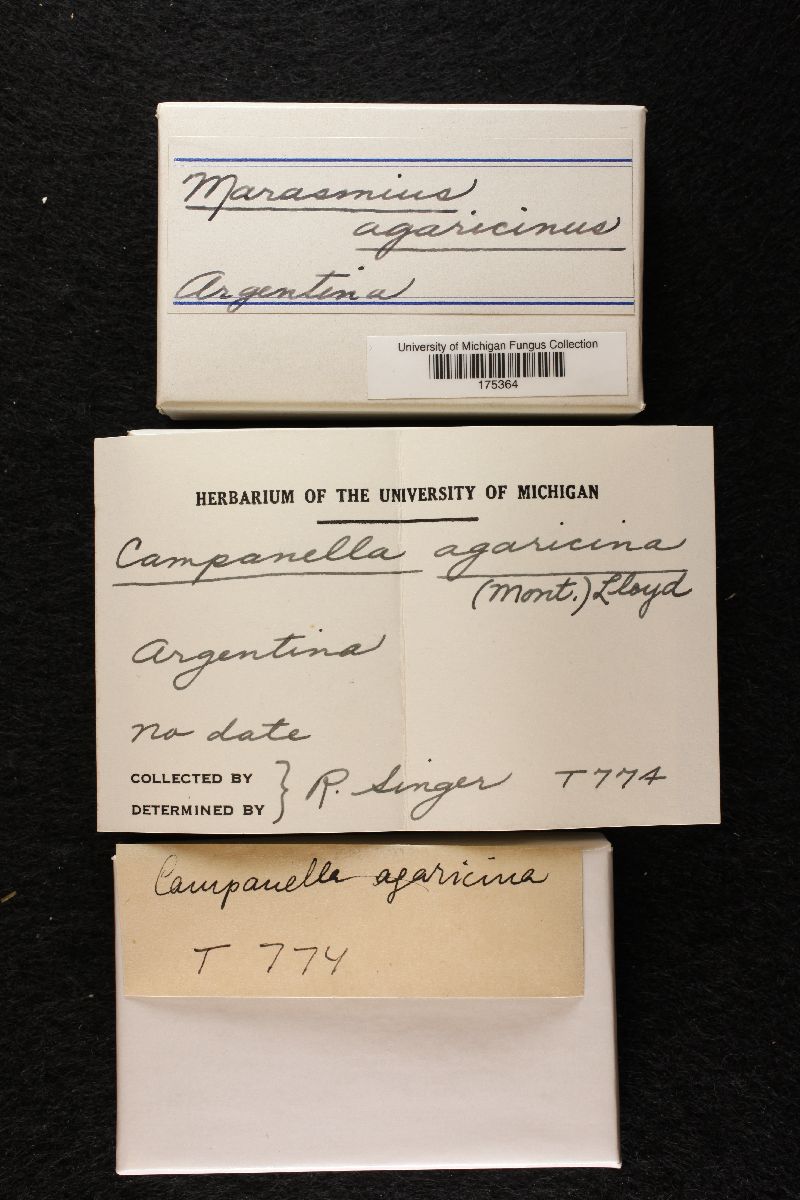 Marasmius
agaricinus
Argentina
University of Michigan Fungus Collection
175364
HERBARIUM OF THE UNIVERSITY OF MICHIGAN
Campanella agaricina
(Mont.) Lloyd
Argentina
no date
COLLECTED BY
DETERMINED BY } R. Singer T774
Campanella agaricina
T 774